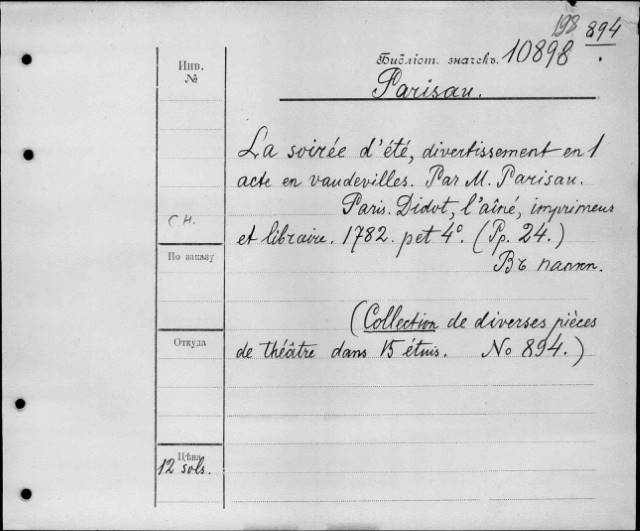 198 894
Библіот. значекъ. 10898
Parisau.
Инв.
№
La soirée d'été, divertissement en 1
acte en vaudevilles. Par M. Parisau.
Paris. Didot, l'aîné, imprimeur
et libraire. 1782. pet 4°. (Pp. 24.)
Въ папкѣ.
С.Н.
По заказу
(Collection de diverses pièces
de théâtre dans 15 étuis. No 894.)
Откуда
Цѣна
12 sols.